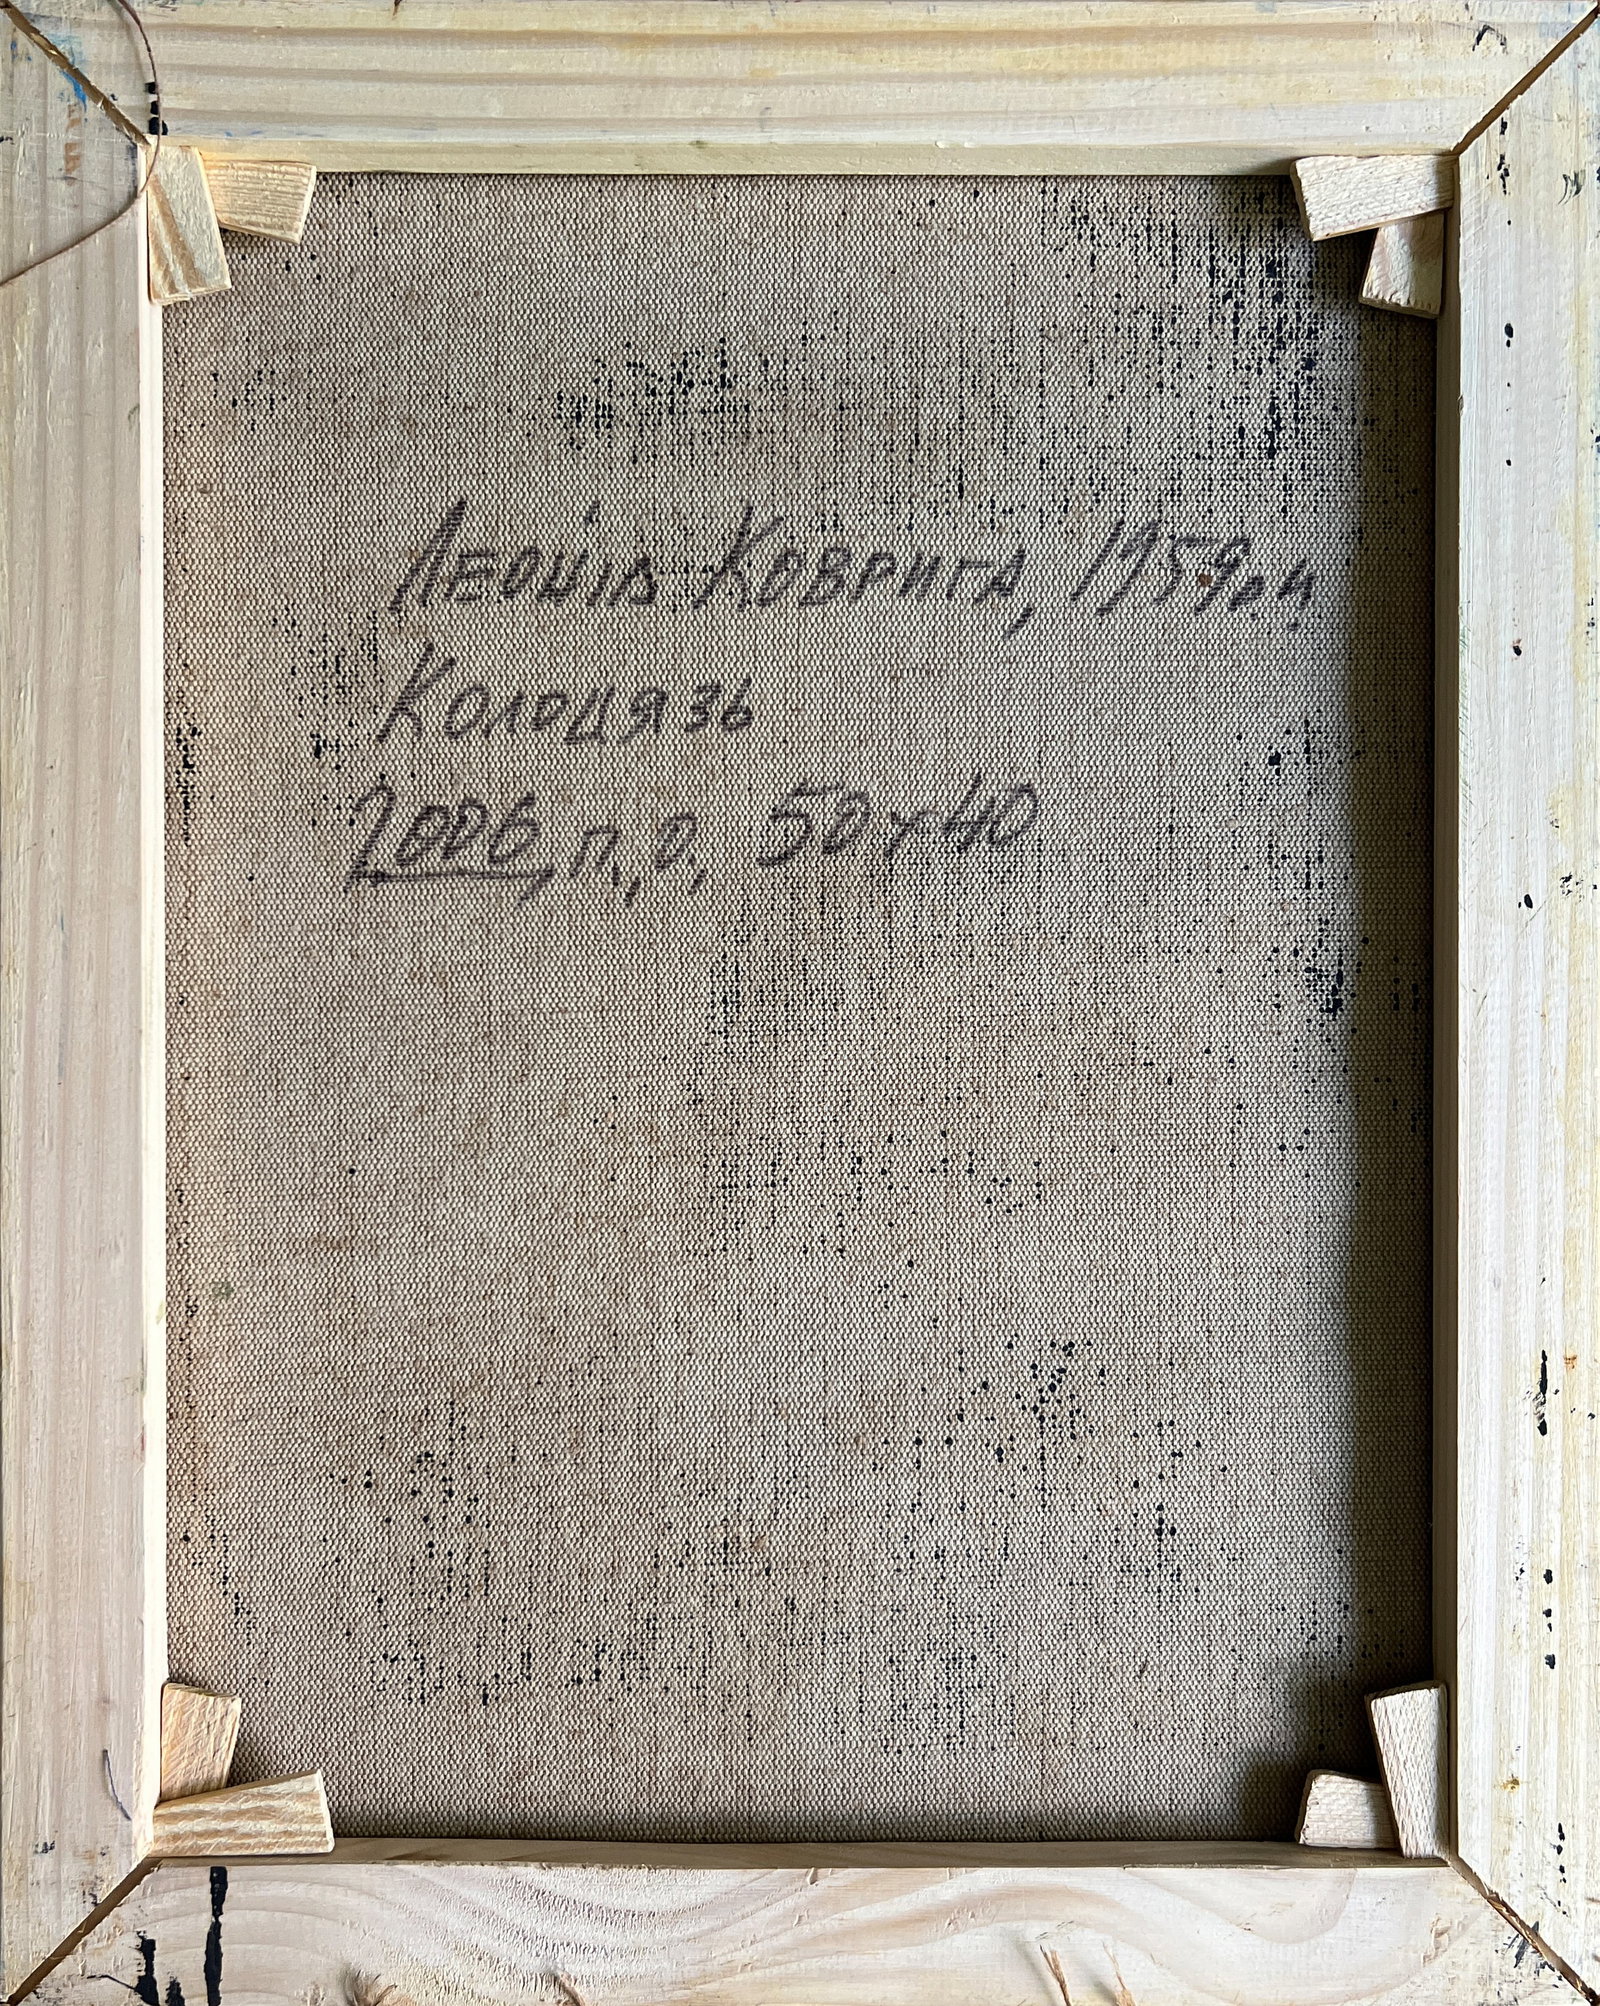 Леонід Коврига, 1959р.н.
Колодязь
2006, п, о, 50х40